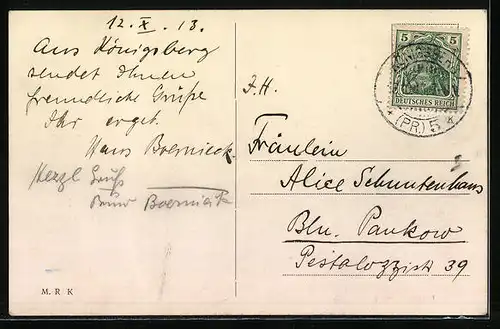 12. X. 13.
Aus Königsberg
sendet Ihnen
freundliche Grüße
Ihr ergeb.
Hans Boernieck.
Herzl Gruß
Boernieck
M. R. K
5 5
DEUTSCHES REICH
(PR.) 5 k
F. H.
Fräulein
Alice Schuntenhaus
Bln. Pankow
Pestalozzistr 39